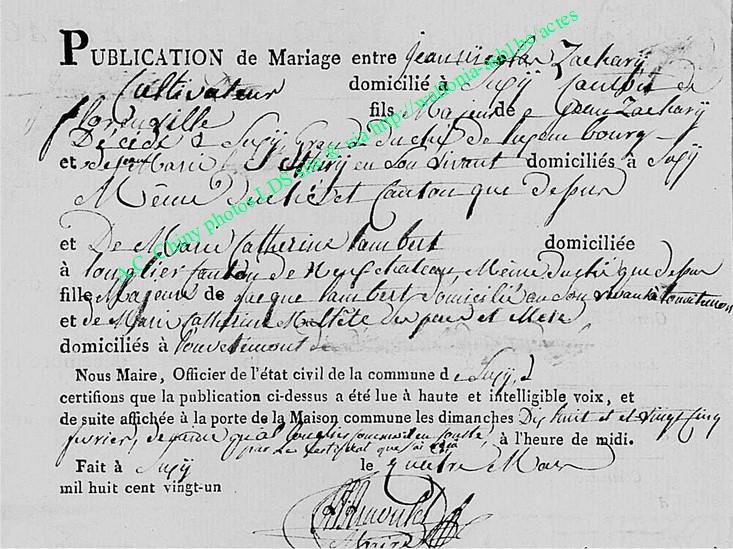 PUBLICATION de Mariage entre Zachary
Cultivateur domicilié à Suxÿ Canton de
florenville fils Majeur de Jean Zacharÿ
Décédé à Suxÿ grand duché de luxembourg
et de Marie en son vivant domiciliés à Suxÿ
Même duché et Canton que dessus
et De Marie Catherine lambert domiciliée
à longlier Canton de Neufchateau, Même duché que dessus
fille Majeure de lambert, domicilié en son vivant à
et de Marie Catherine ses père et Mère
domiciliés à
Nous Maire, Officier de l'état civil de la commune de Suxÿ,
certifions que la publication ci-dessus a été lue à haute et intelligible voix, et
de suite affichée à la porte de la Maison commune les dimanches Dix huit et vingt cinq
fevrier, de même qu'à longlier à l'heure de midi.
par le certificat que j'ai
Fait à Suxÿ le quatre Mars
mil huit cent vingt-un
Maire
A.C. Chiny photos LDS site & via http://wallonia-asbl.be/actes